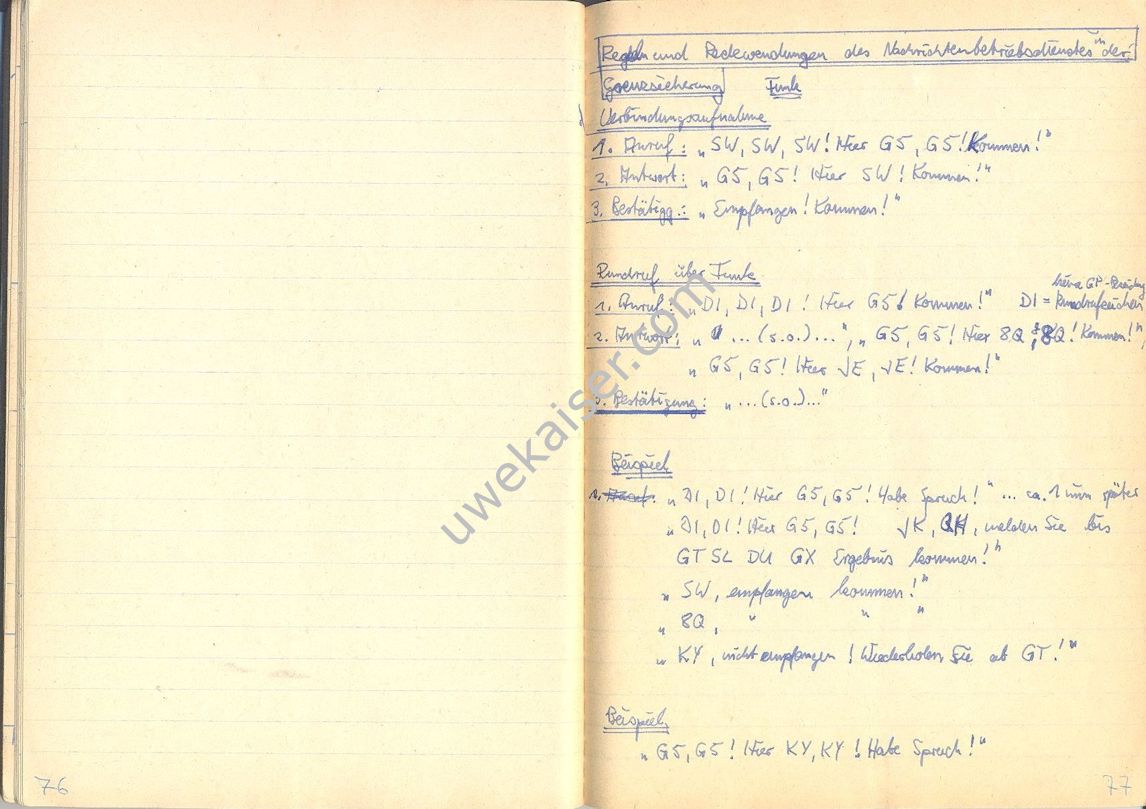 Regeln und Redewendungen des Nachrichtenbetriebsdienstes in der
Grenzsicherung Funk
Verbindungsaufnahme
1. Anruf: „SW, SW, SW! Hier G5, G5! Kommen!"
2. Antwort: „G5, G5! Hier SW! Kommen!"
3. Bestätigg.: „Empfangen! Kommen!"
Rundruf über Funk
1. Anruf: „D1, D1, D1! Hier G5! Kommen!" D1 = Rundrufzeichen
2. Antwort: „ ... (s.o.)...", „G5, G5! Hier 8Q, 8Q! Kommen!",
„G5, G5! Hier √E, √E! Kommen!"
3. Bestätigung: „...(s.o.)..."
Beispiel
1. „D1, D1! Hier G5, G5! Habe Spruch!" ... ca. 1 min später
„D1, D1! Hier G5, G5! √K, melden Sie bis
GT SL DU GX Ergebnis kommen!"
„SW, empfangen kommen!"
„8Q, " " "
„KY, nicht empfangen! Wiederholen Sie ab GT!"
Beispiel
„G5, G5! Hier KY, KY! Habe Spruch!"
76
77
uwekaiser.com